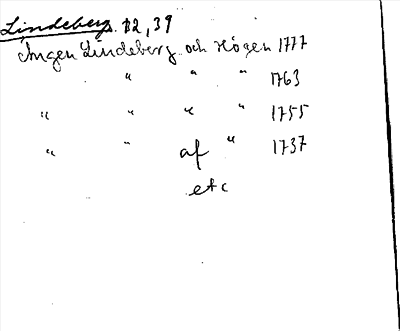 Lindeberg. 12, 39
Ingen Lindeberg och Högen 1777
" " " 1763
" " " " 1755
" " af " 1737
etc